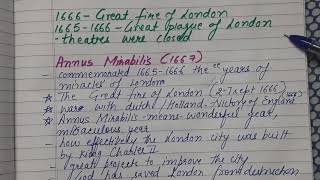 1666- Great fire of London
1665-1666- Great plague of London
-theatres were closed
Annus Mirabilis (1667)
- commemorated 1665-1666 the "years of
miracles" of London
* The Great fire of London (2-7 sept 1666)
* war with dutch/Holland-victory of England
* Annus Mirabilis-means-wonderful year,
miraculous year
- how effectively the London city was built
by King Charles II
- great projects to improve the city
- God has saved London from destruction